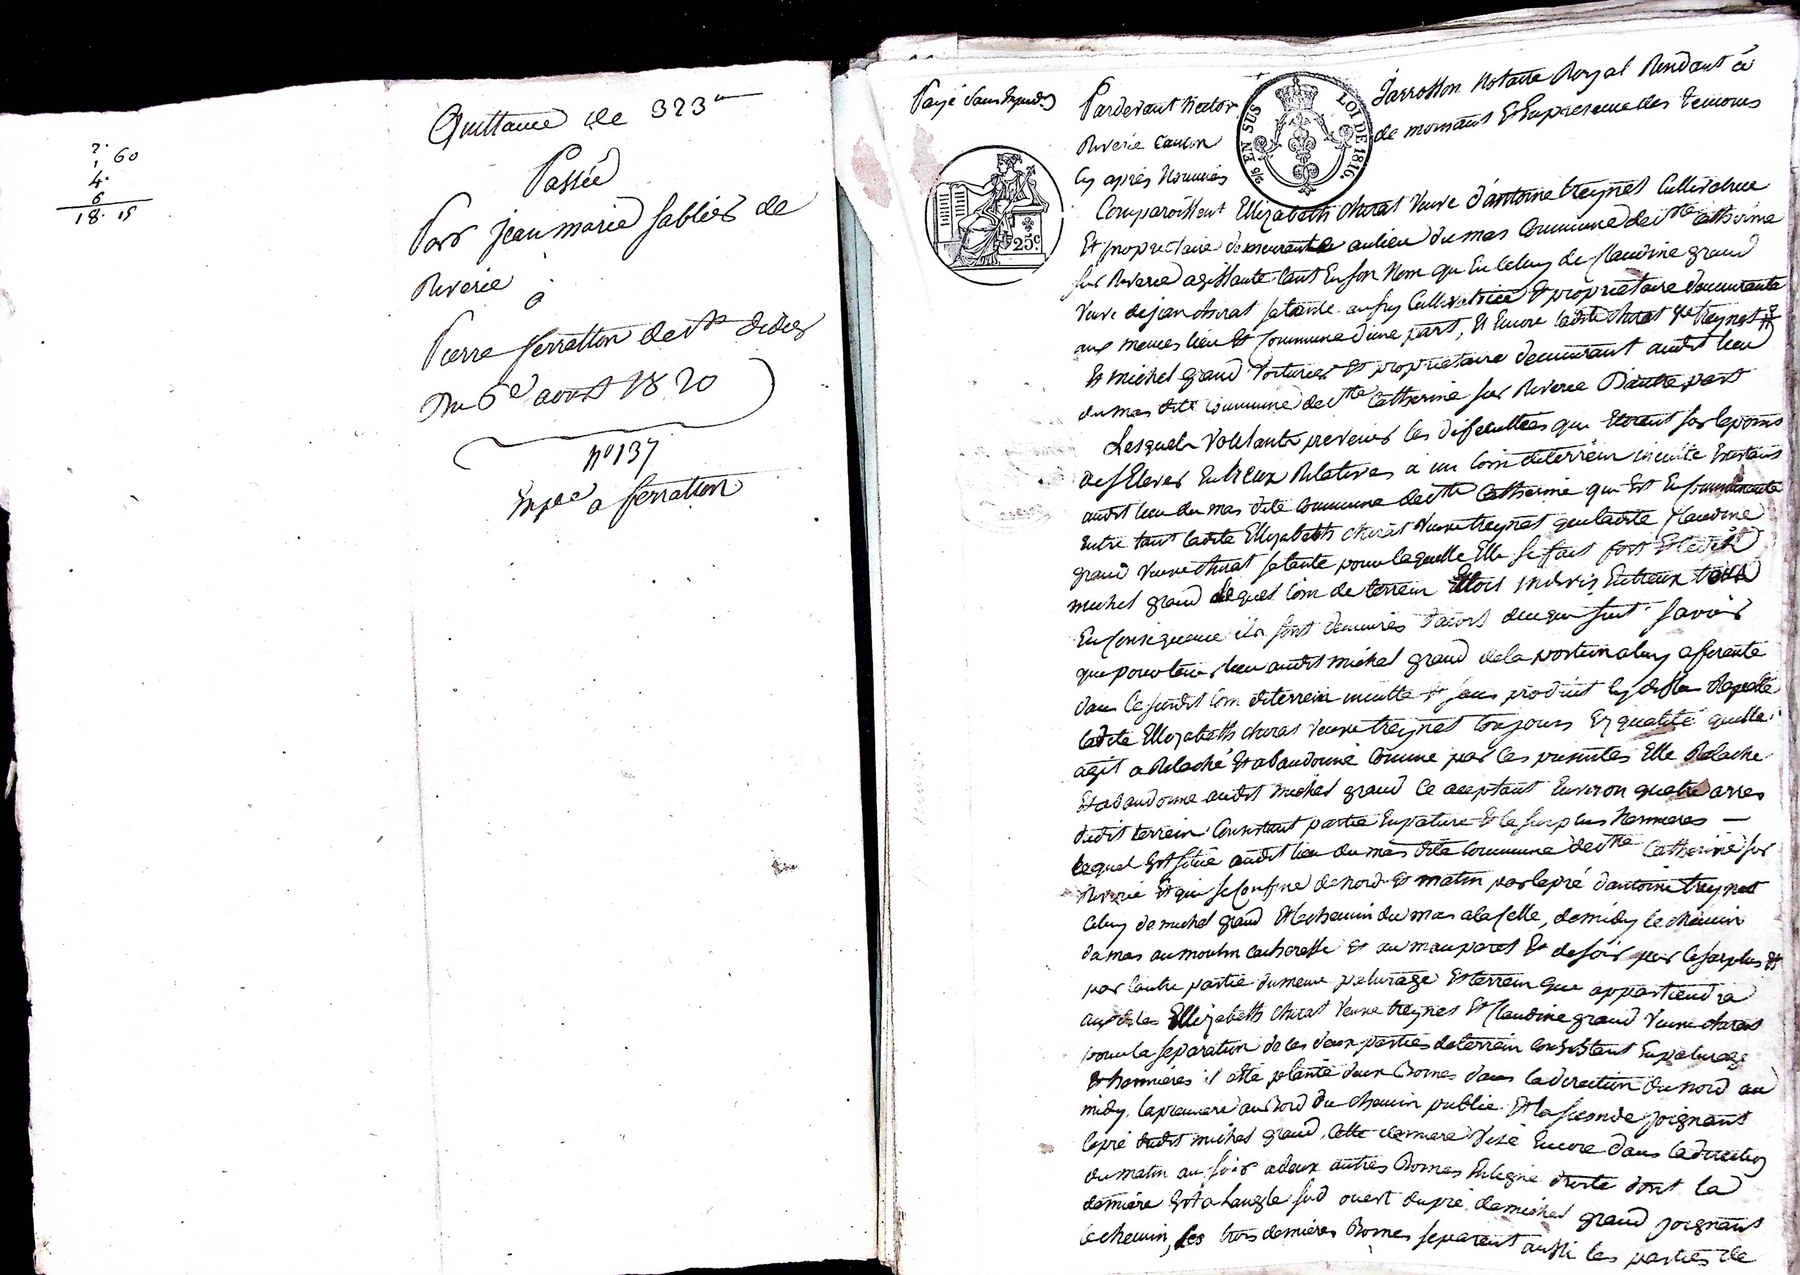 2.
1 60
4.
6
18. 15
Quittance de 323
Passée
Par jean marie sablier de
Riverie
à
Pierre ferratton de St didier
Du 6e aoust 1820
no 137
Expée a ferratton
Payé sans Expedon
Pardevant hector Jarrosson Notaire Royal Résidant à
Riverie canton de mornant Et En presence des temoins
cy après Nommés
EN SUS
LOI DE 1816.
25c.
Comparoissent Ellizabeth chirat Veuve d'antoine treynet Cultivatrice
Et propriétaire demeurante au lieu du mas Commune de Ste catherine
sur Riverie agissante tant En son Nom qu'En Celuy de Claudine grand
Veuve de jean chirat sa tante aussy Cultivatrice Et propriétaire demeurante
aux memes lieu Et Commune d'une part, Et Encore ladite chirat Ve treynet
Et michel grand Voiturier Et propriétaire demeurant audit lieu
du mas dite commune de Ste Catherine sur Riverie D'autre part
Lesquels Voullants prevenir les difficultées qui Etoient sur le point
de s'Elever Entreux Relatives à un Coin de terrein inculte Existant
audit lieu du mas dite commune de Ste Catherine qui Est En Communauté
Entre tant ladite Ellizabeth chirat Veuve treynet que ladite Claudine
grand Veuve chirat sa tante pour laquelle Elle se fait fort Et ledit
michel grand lequel Coin de terrein Etoit indivis Entreux tous
En Consequance ils sont demeurés d'acord de ce qui suit savoir
que pour tenir lieu audit michel grand de la portion a luy afferente
dans le susdit Coin de terrein inculte Et sans produit cy dessus Rapellé
ladite Ellizabeth chirat Veuve treynet toujours En qualité quelle
agit a Relaché Et abandonné comme par ces presentes Elle Relache
Et abandonne audit michel grand Ce aceptant Environ quatre arres
dudit terrein Consistant partie En pature Et le surplus hermieres —
lequel Est situé audit lieu du mas dite Commune de Ste Catherine sur
Riverie Et qui se Confine de nord Et matin par le pré d'antoine treynet
Celuy de michel grand Et le chemin du mas a la selle, de midy le chemin
du mas au moulin Et au Et de soir par le surplus Et
par l'autre partie du meme paturage Et terrein que appartiendra
auxdites Ellizabeth chirat Veuve treynet Et Claudine grand Veuve chirat
pour la separation de ces deux parties de terrein consistant En paturage
Et hermières il a été planté deux Bornes dans la direction du nord au
midy. la premiere au Bord du chemin public Et la seconde joignant
le pré dudit michel grand, cette derniere Visé Encore dans la direction
du matin au soir a deux autres Bornes En ligne droite dont la
derniére Est a langle sud ouest du pré de michel grand joignant
le chemin, les trois derniéres Bornes separent aussi les parties de